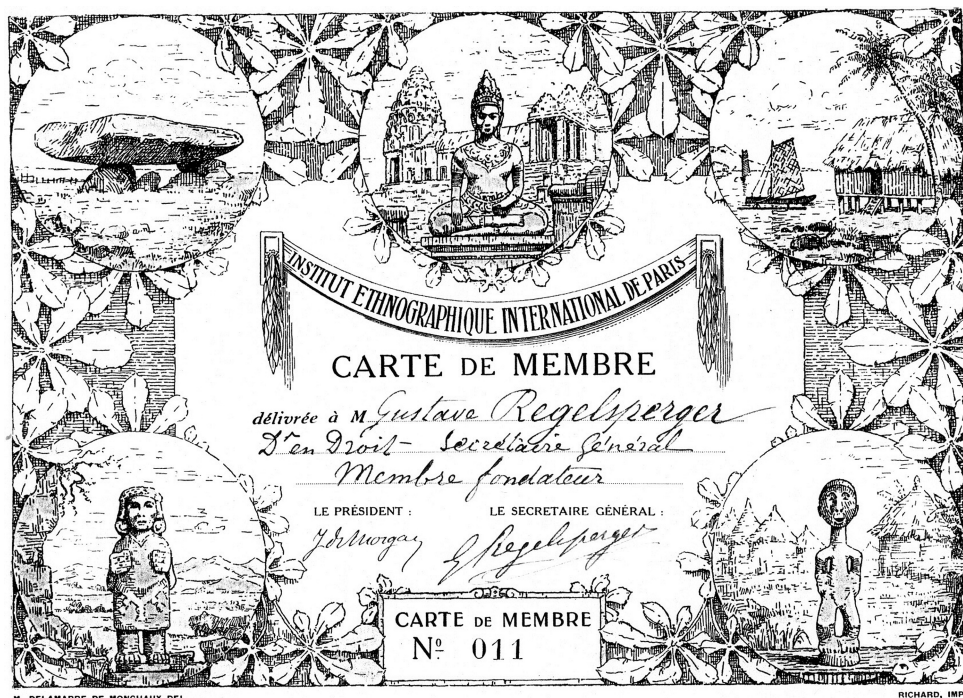 INSTITUT ETHNOGRAPHIQUE INTERNATIONAL DE PARIS
CARTE DE MEMBRE
délivrée à M Gustave Regelsperger
Dr en Droit - Secrétaire Général
Membre fondateur
LE PRÉSIDENT : LE SECRETAIRE GÉNÉRAL :
J de Morgan G Regelsperger
CARTE DE MEMBRE
No 011
M. DELAMARRE DE MONCHAUX DEL. RICHARD, IMP